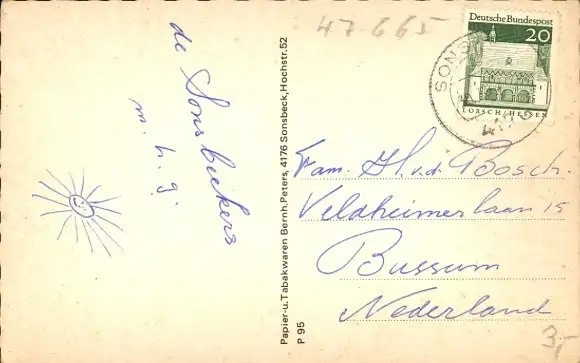 47-665
de Sonsbeckers
m. h. g.
Papier-u. Tabakwaren Bernh. Peters, 4176 Sonsbeck, Hochstr. 52
P 95
Deutsche Bundespost
20
LORSCH/HESSEN
SONS
Fam. H. v.d. Poosch.
Veldheimerlaan 15
Bussum
Nederland
3,-